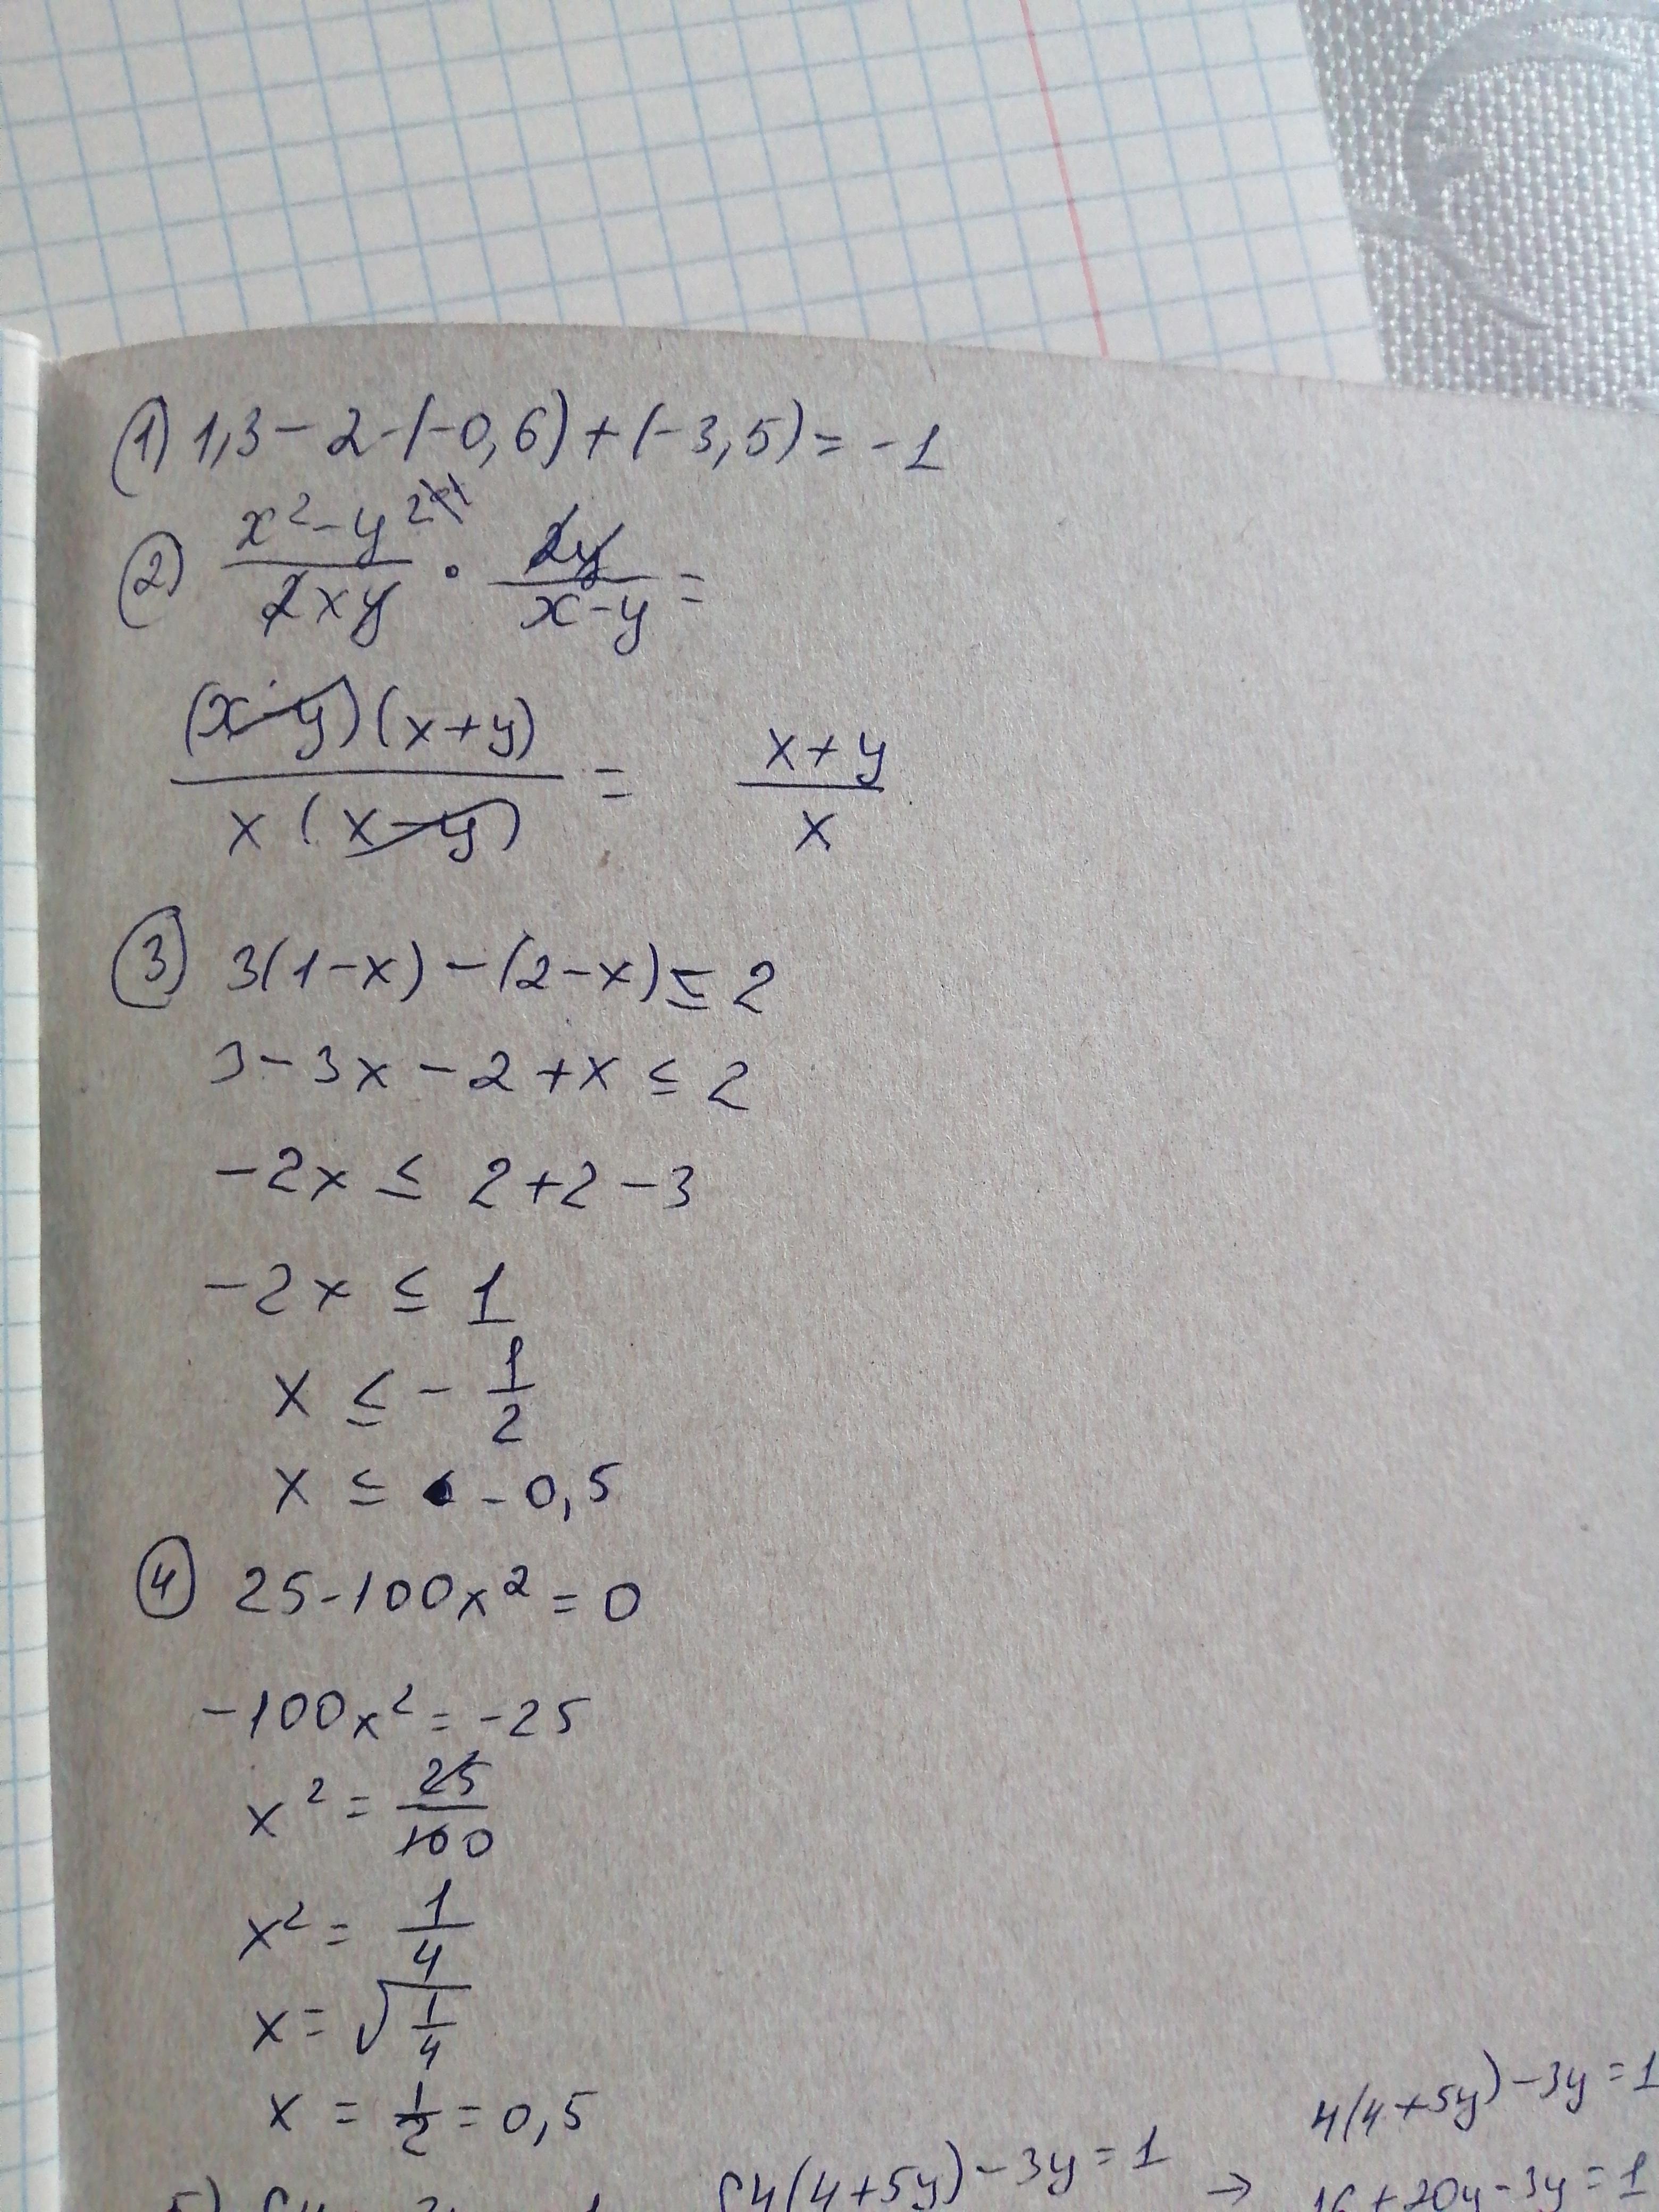 (1) 1,3 - 2 - (-0,6) + (-3,5) = -1
(2) x² - y² / 2xy · 2y / x-y =
(x-y)(x+y) / x(x-y) = x+y / x
(3) 3(1-x) - (2-x) ≤ 2
3 - 3x - 2 + x ≤ 2
-2x ≤ 2+2-3
-2x ≤ 1
x ≤ - 1/2
x ≤ -0,5
(4) 25-100x² = 0
-100x² = -25
x² = 25/100
x² = 1/4
x = √1/4
x = 1/2 = 0,5
4(4+5y) - 3y = 1
4(4+5y) - 3y = 1 →
16 + 20y - 3y = 1